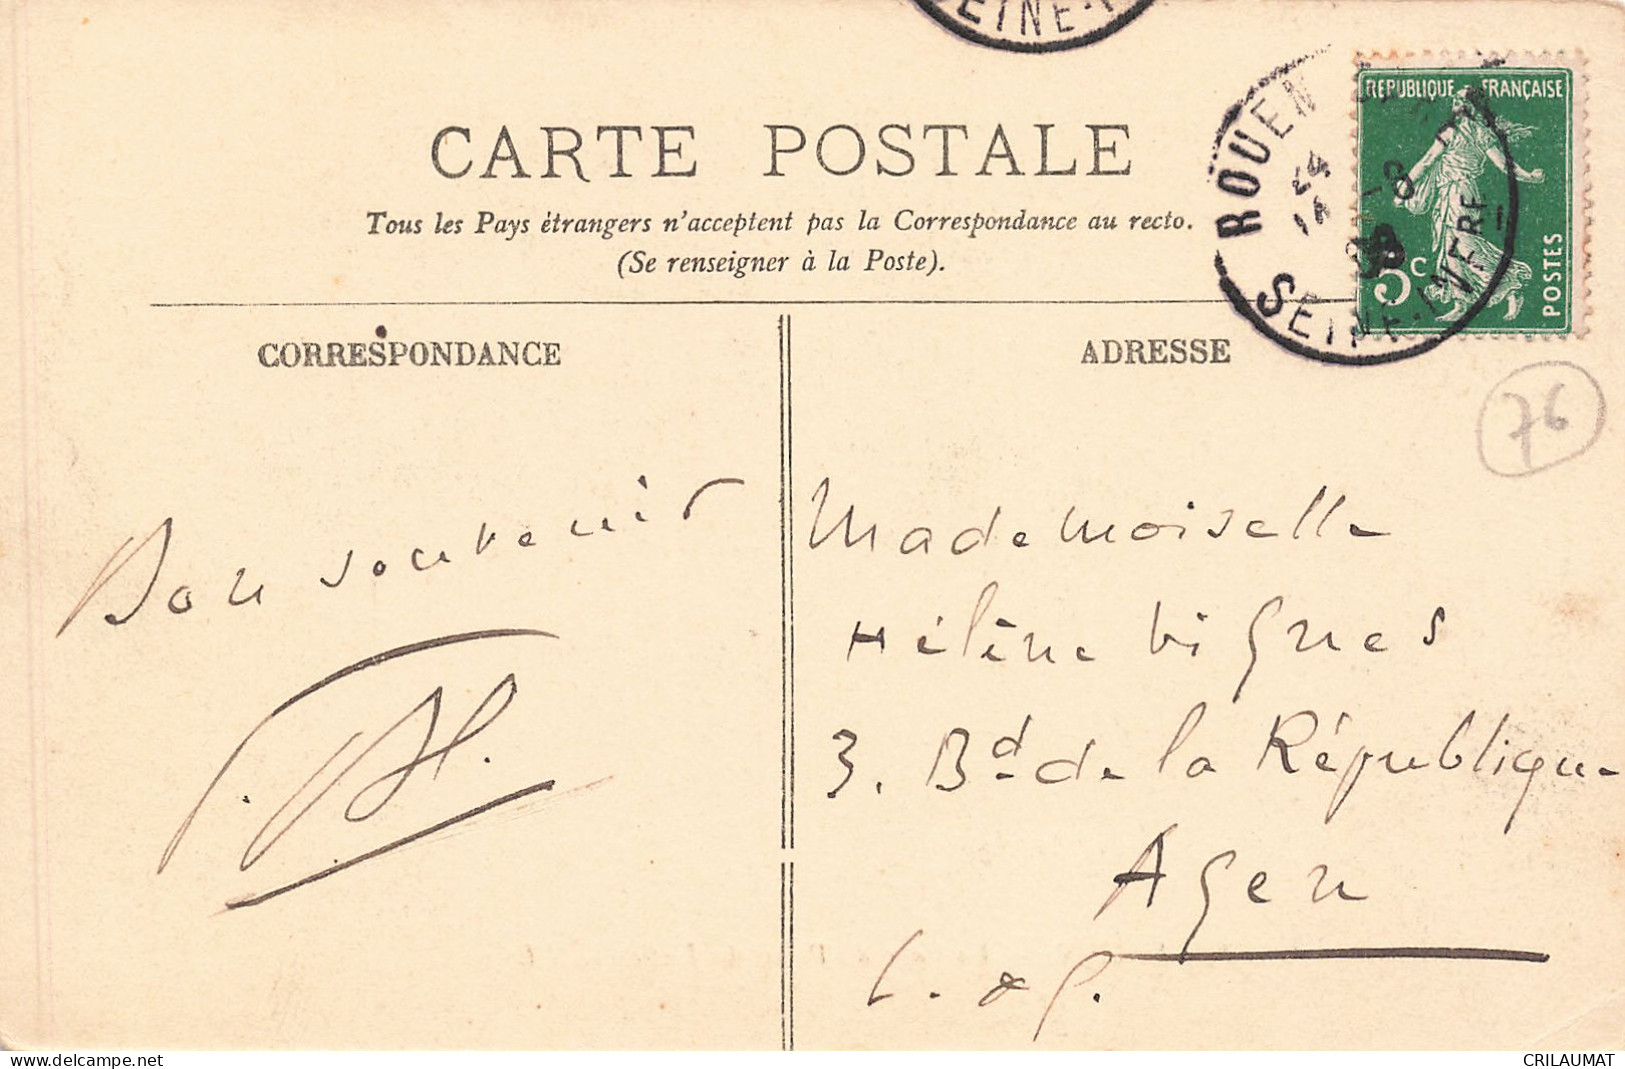 SEINE-I
CARTE POSTALE
Tous les Pays étrangers n'acceptent pas la Correspondance au recto.
(Se renseigner à la Poste).
ROUEN
SEINE-INFRE
REPUBLIQUE FRANÇAISE
5c
POSTES
CORRESPONDANCE
ADRESSE
76
Bon souvenir
Mademoiselle
Hélène Vignes
3. Bd de la République
Agen
L. & G.
www.delcampe.net
CRILAUMAT